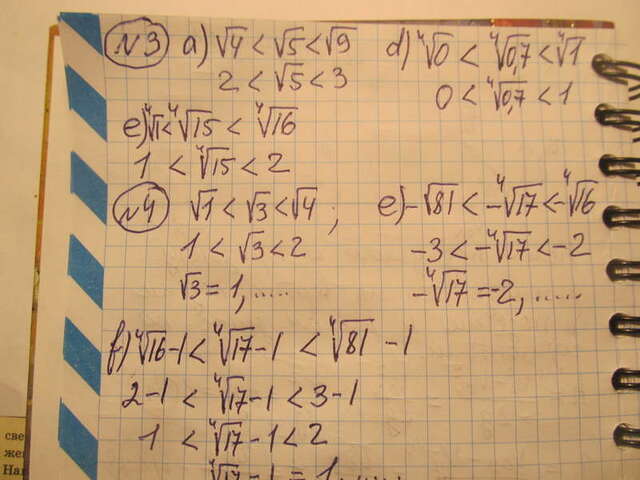 №3 a) √4 < √5 < √9
2 < √5 < 3
d) ⁴√0 < ⁴√0,7 < ⁴√1
0 < ⁴√0,7 < 1
e) ⁴√1 < ⁴√15 < ⁴√16
1 < ⁴√15 < 2
№4 √1 < √3 < √4 ;
1 < √3 < 2
√3 = 1, .....
e) -√81 < -⁴√17 < -⁴√16
-3 < -⁴√17 < -2
-⁴√17 = -2, .....
f) ⁴√16 -1 < ⁴√17 -1 < ⁴√81 -1
2-1 < ⁴√17 -1 < 3-1
1 < ⁴√17 -1 < 2
⁴√17 -1 = 1, .....
све
жен
Наг